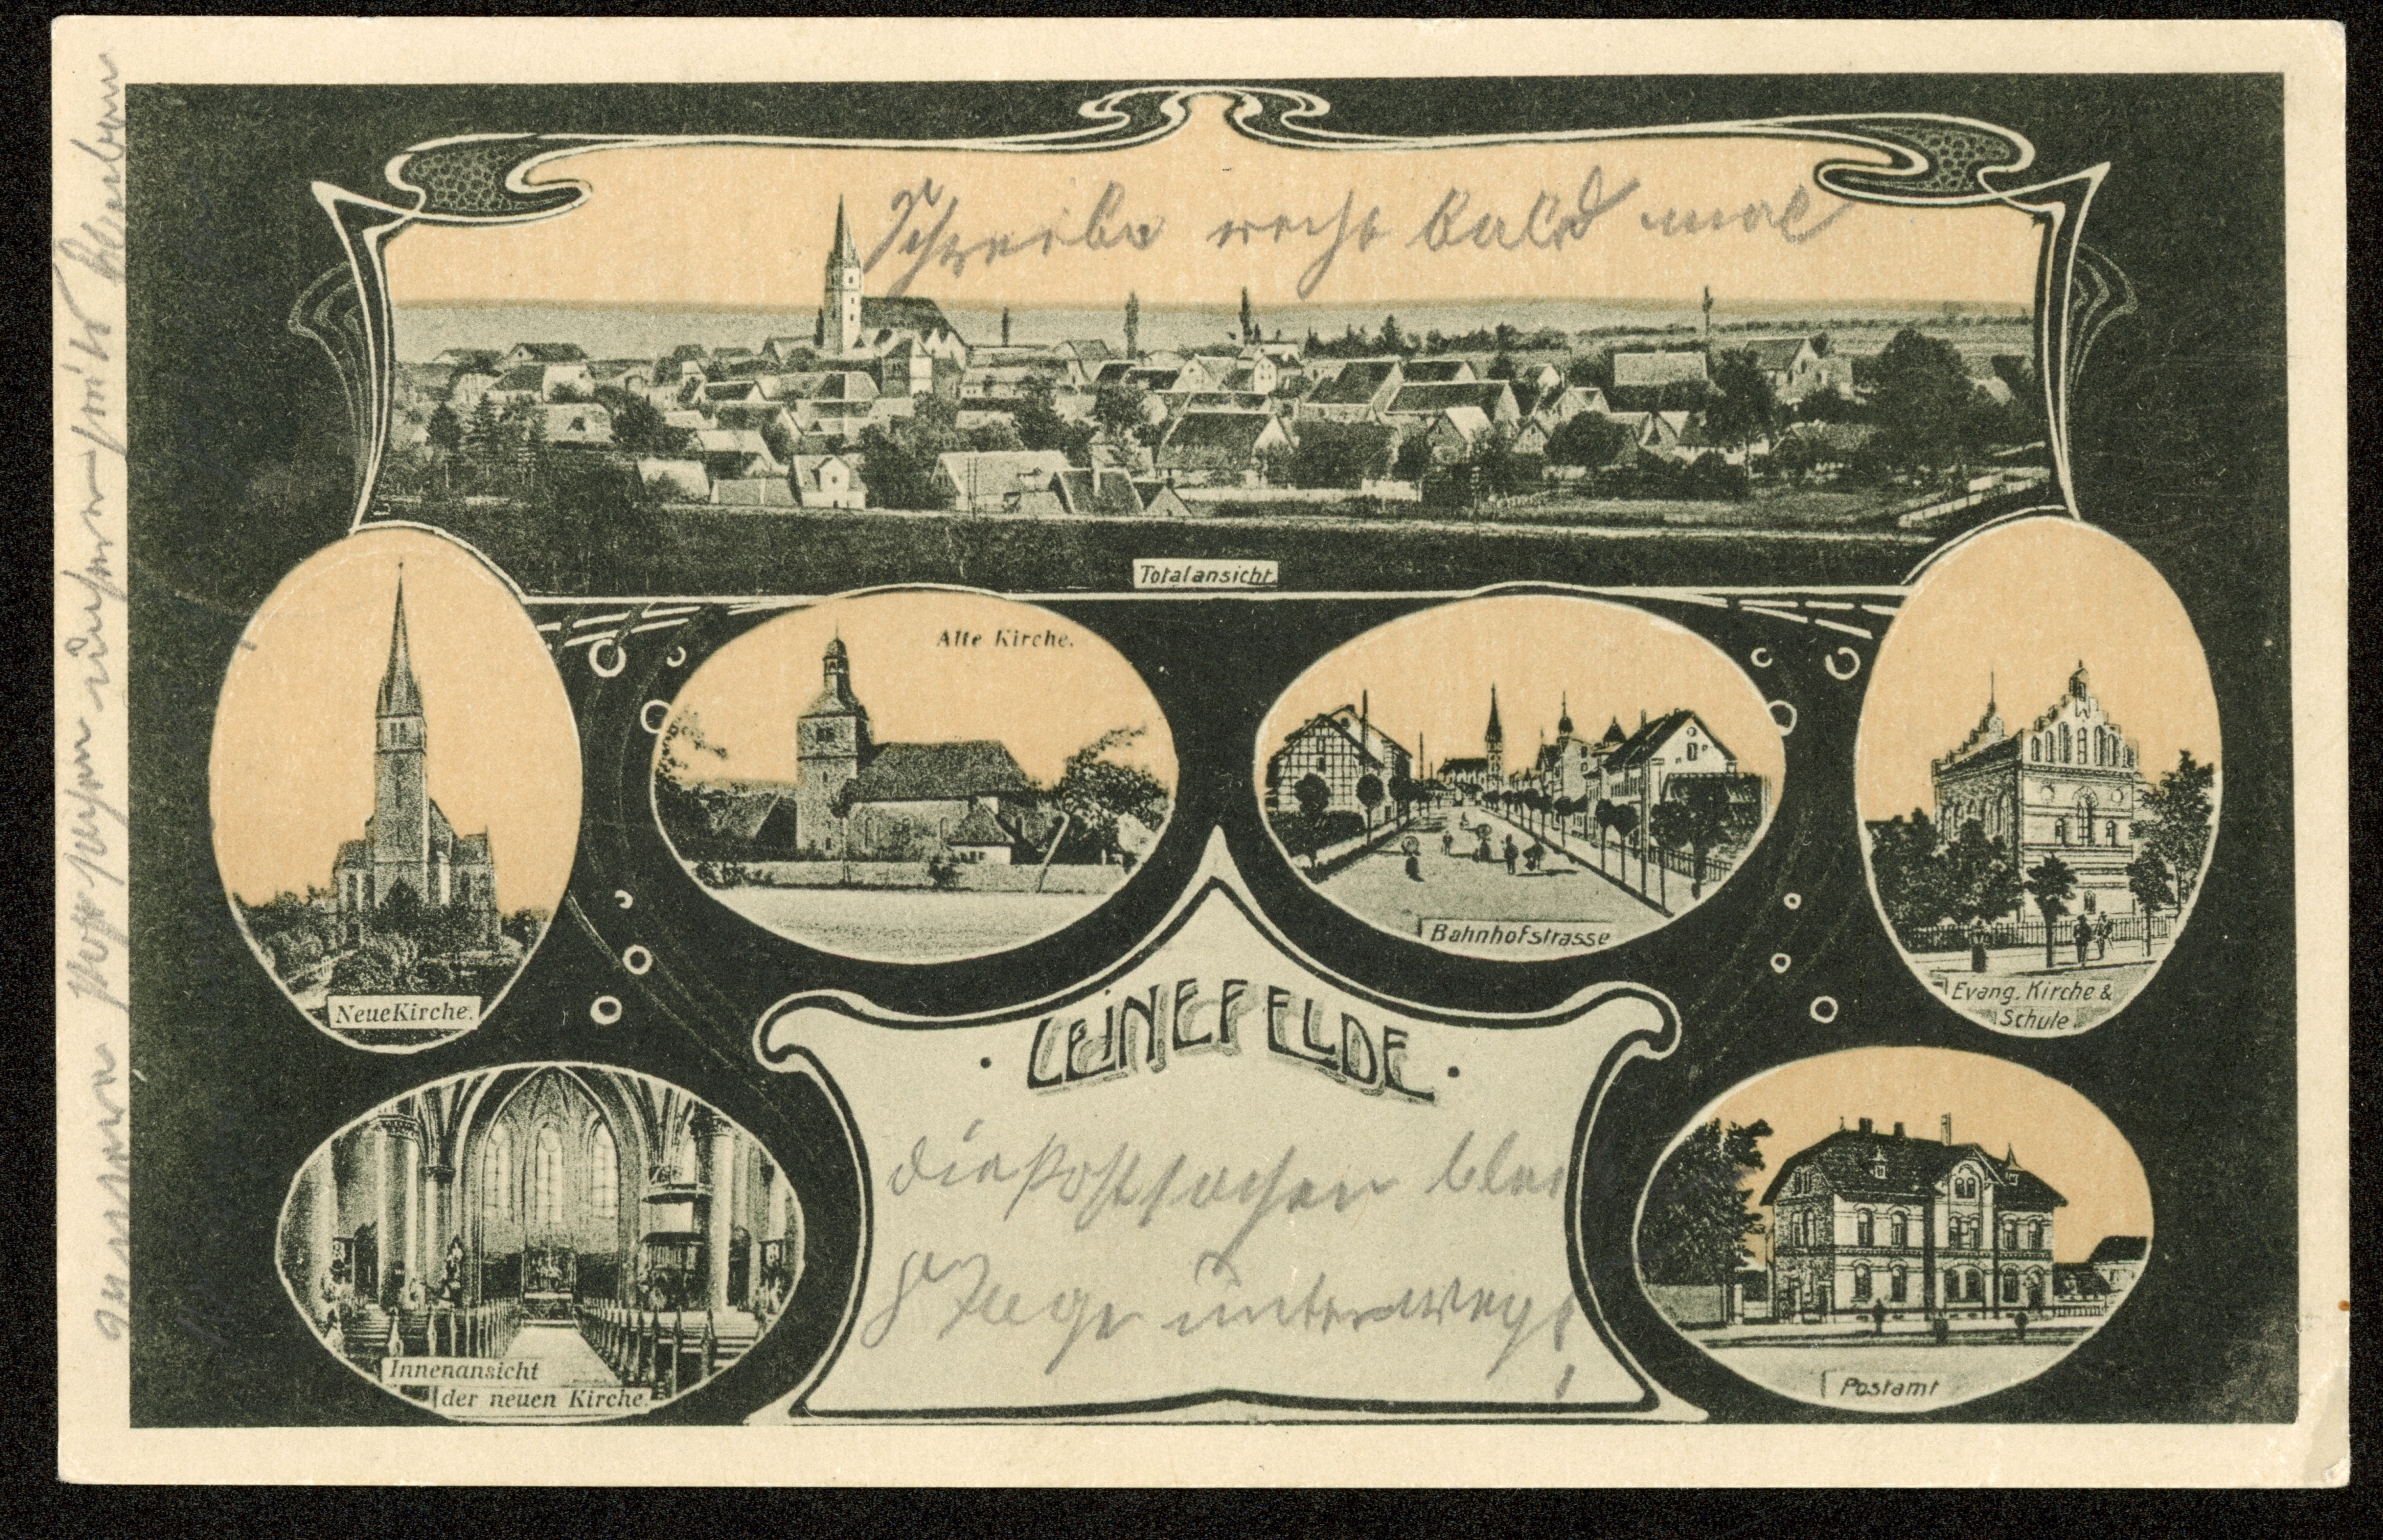 Schreibe recht bald mal
Totalansicht
Alte Kirche.
Bahnhofstrasse
Neue Kirche.
Evang. Kirche &
Schule.
LEINEFELDE
die Postsachen
8 Tage unterwegs!
Innenansicht
der neuen Kirche.
Postamt